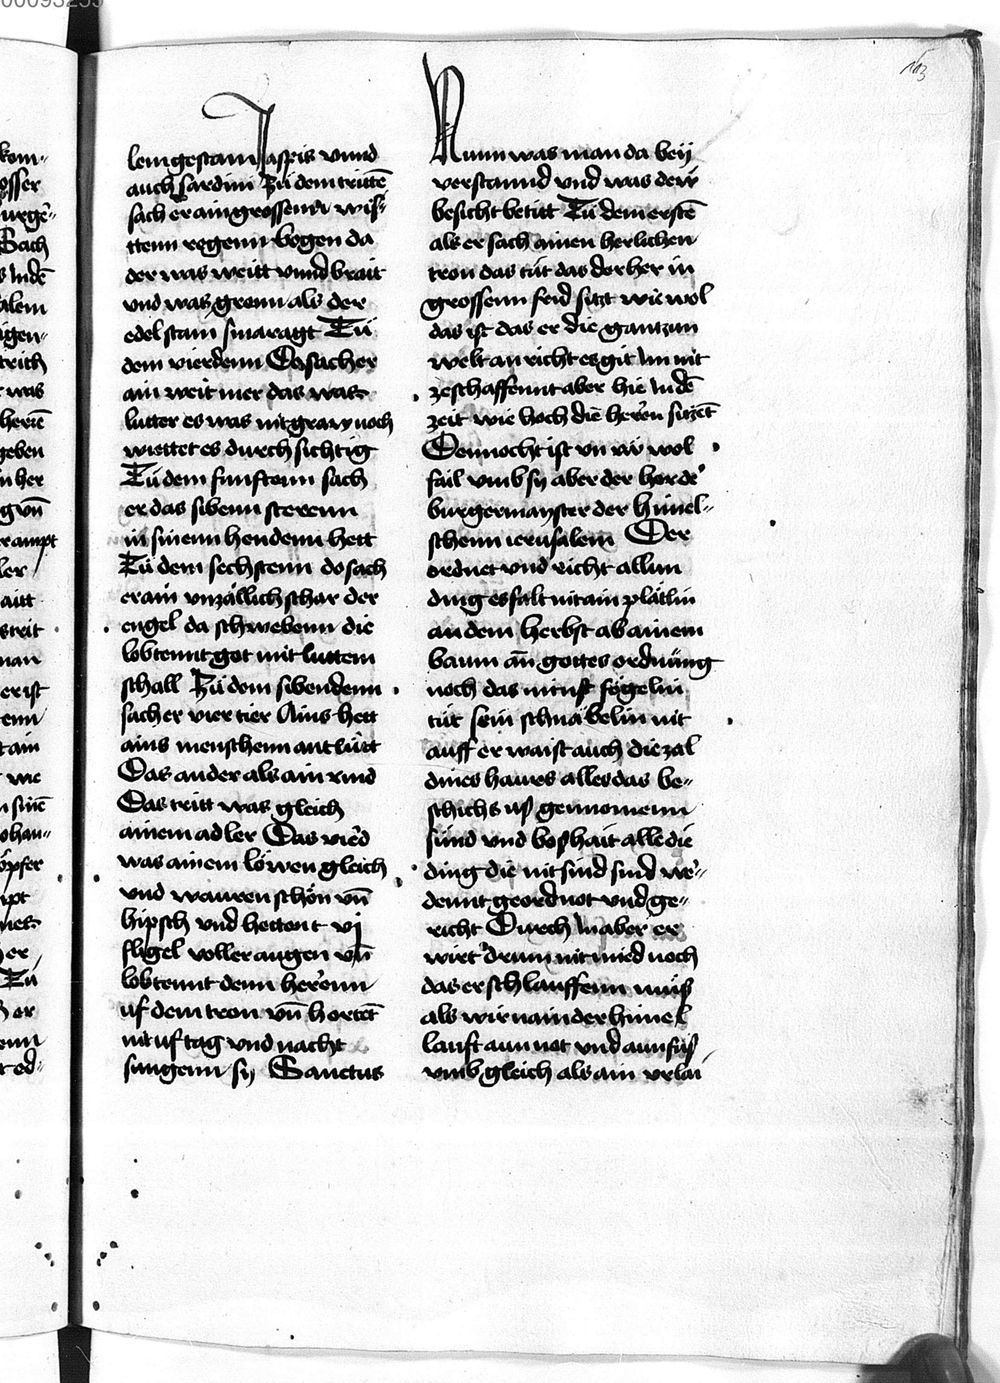 00093255
163
lemgestain Jaspis vnnd
auch sardini Zü dem trittē
sach er ain grossenn wis-
ttenn regenn bogen da
der was weitt vnnd brait
vnd was gronn als der
edel stain smaragt Zü
dem vierdenn Do sach er
ain weit mer das was
lutter es was nit graw noch
wiettet es durch sichtig
Zü dem funftenn sach
er das sibenn sterenn
in sinenn hendenn hett
Zü dem sechstenn do sach
er ain vnzällich schar der
engel da schwebenn die
lobtennt got mit luttem
schall Zü dem sibendenn
sach er vier tier Ains hett
ains menschenn antlütt
Das ander als ain rind
Das tritt was gleich
ainem adler Das vierd
was ainem löwen gleich
vnd wauren schön vn̄
hipsch vnd hettent vj
fligel voller augen vn̄
lobtennt denn herenn
uf dem tron vn̄ hortēt
nit uf tag vnd nacht
sungenn sy Sanctus
Nunn was man da beij
verstannd vnd was dew
besicht betitt Zü dem erstē
als er sach ainen herlichen
tron das tüt das der her in
grossenn frid sitzt wie wol
das ist das er die gantzun
welt an richt es git im nit
ze schaffennt aber hie in dē
zeit wie hoch die heren sitzēt
Dennocht ist vn rw wol
fail vmb sy aber der
burgermayster der himel-
schenn ierusalem Der
ordnet vnd richt allun
ding es falt nit ain plätlin
an dem herbst ab ainem
baum an gottes ordnüng
noch das minst fögelin
tüt sein schnäbelin nit
auff er waist auch die zal
dines haures alles das be-
schichs us genomenn
sünd vnd boshait alle die
ding die nit sind sind we-
dennt geordnot vnd ge-
richt Durch in aber er
wirt drum nit mied noch
das er schlauffenn müs
als wir nain der himel
lauft ann not vnd ann füs
vmb gleich als ain